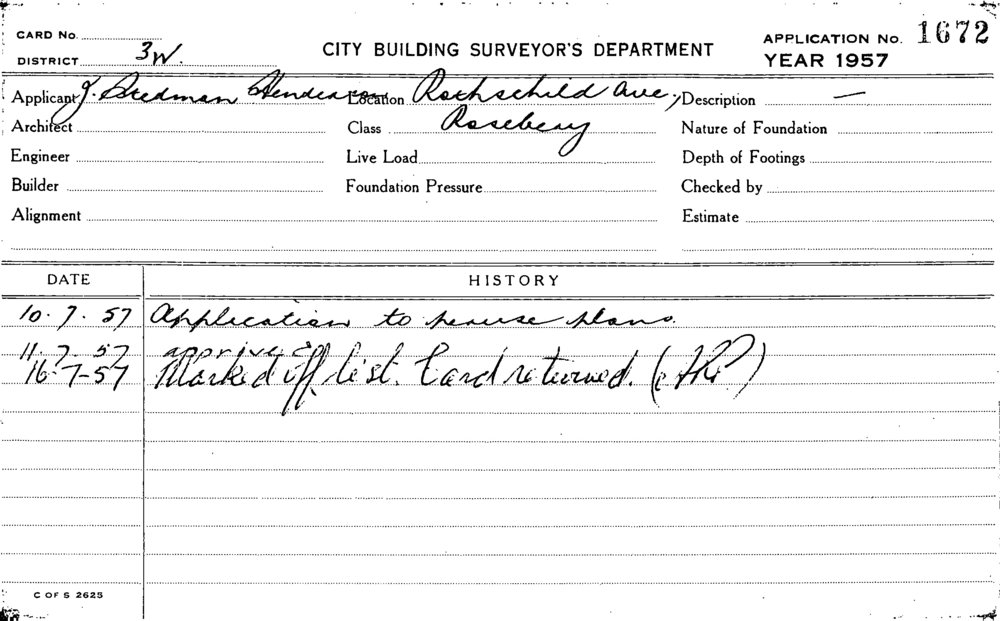 CARD No.
DISTRICT 3W.
CITY BUILDING SURVEYOR'S DEPARTMENT
APPLICATION No. 1672
YEAR 1957
Applicant J. Stedman Henderson Location Rothschild Ave, Description —
Architect Class Rosebery Nature of Foundation
Engineer Live Load Depth of Footings
Builder Foundation Pressure Checked by
Alignment Estimate
DATE HISTORY
10.7.57 Application to peruse plans.
11.7.57 approved
16-7-57 Marked off list. Card returned.
C OF S 2625